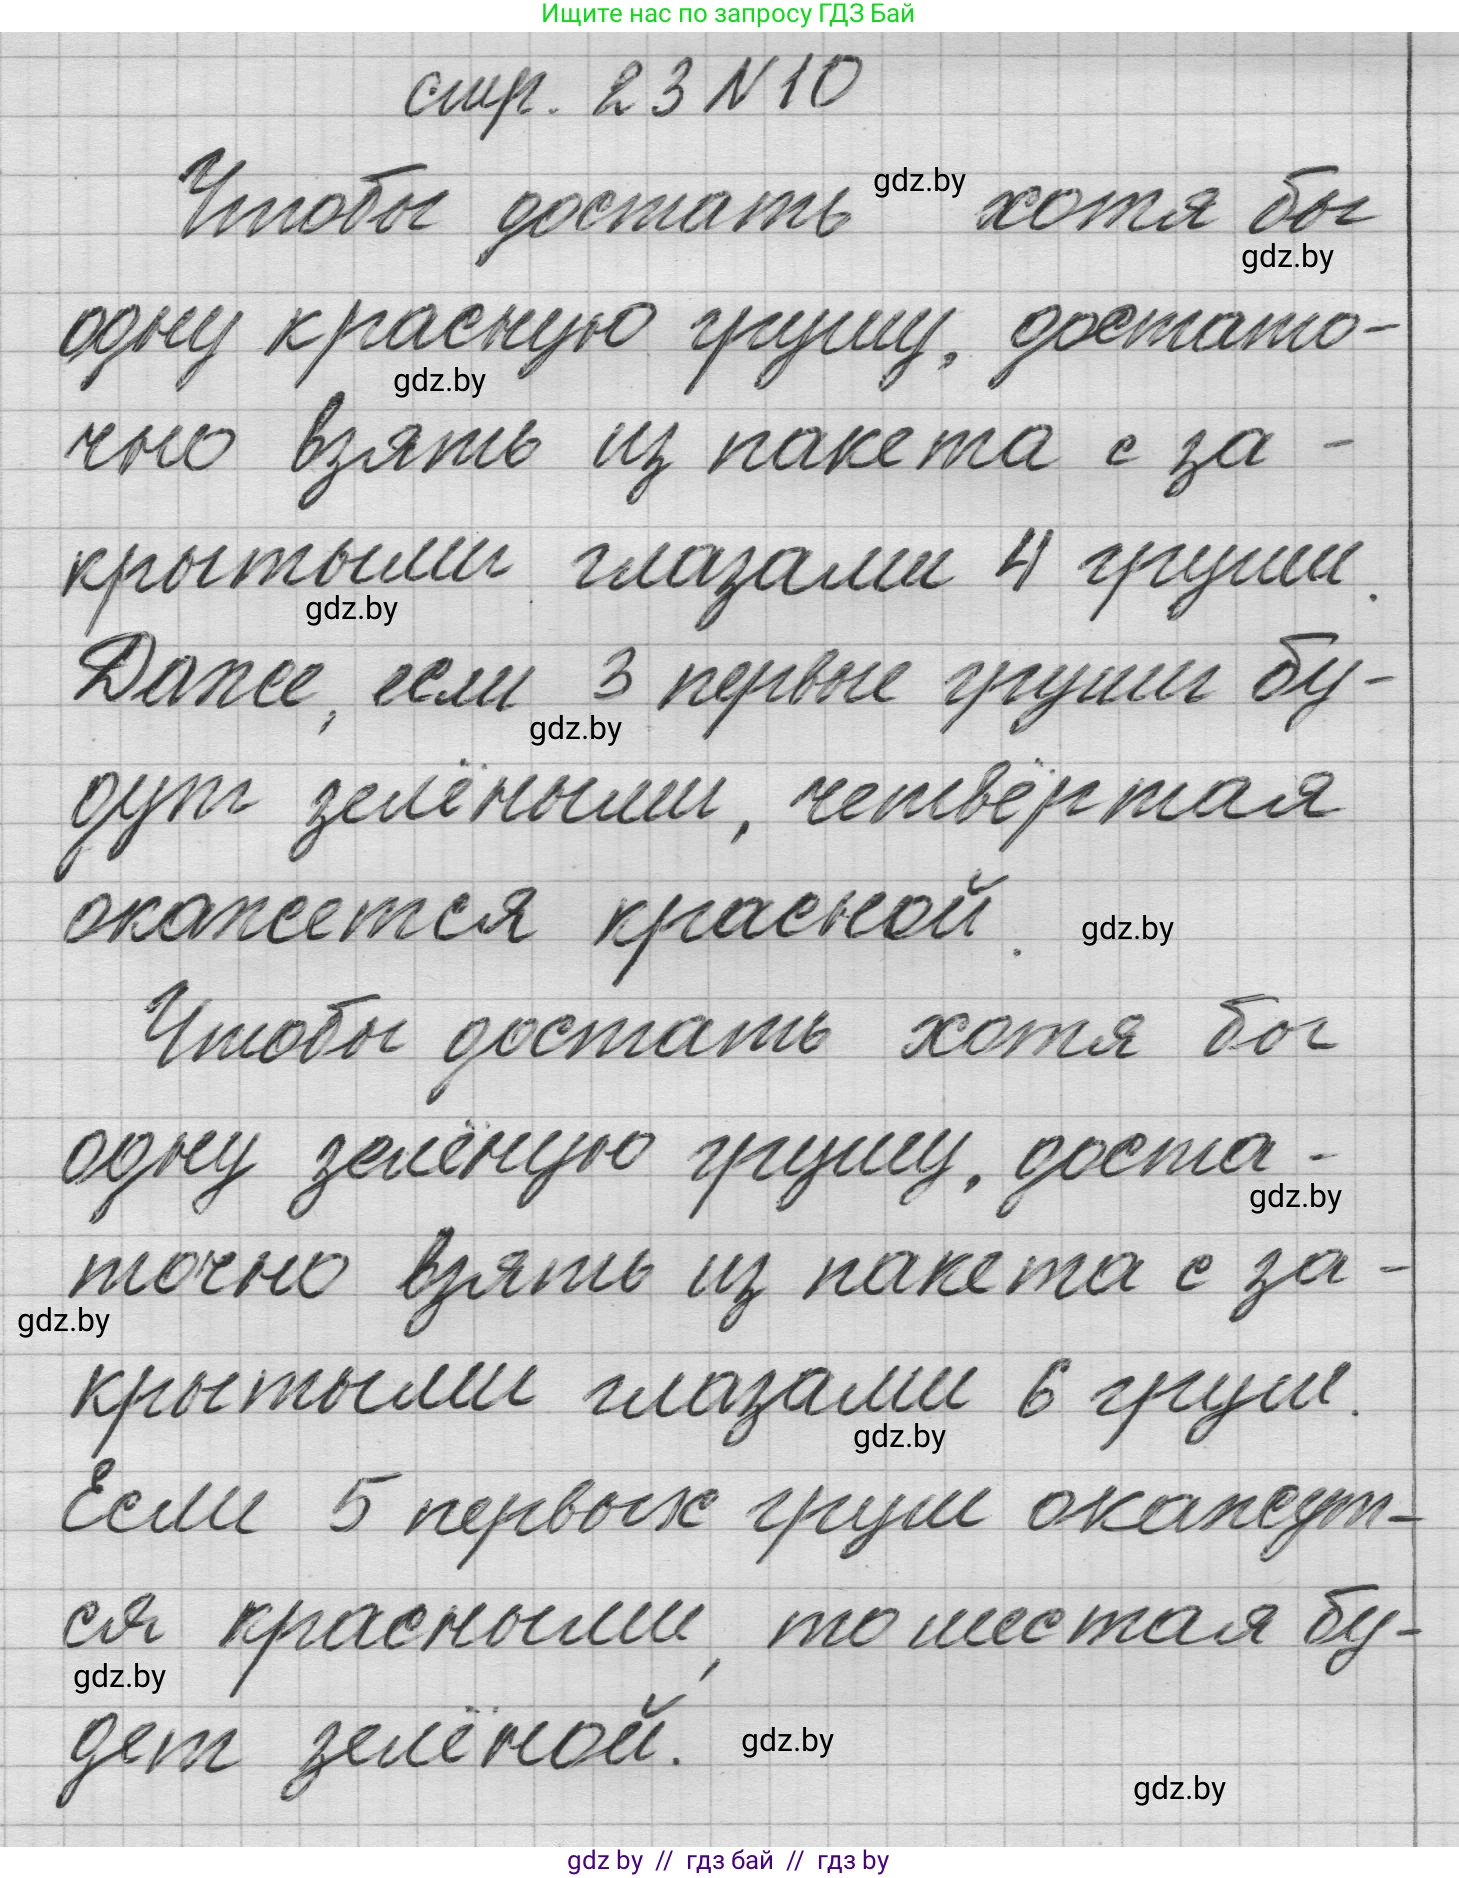 Ищите нас по запросу ГДЗ Бай
стр. 23 N10
Чтобы достать gdz.by хотя бы
gdz.by
одну красную грушу, достато-
gdz.by
чно взять из пакета с за-
крытыми глазами 4 груши.
gdz.by
Даже, если 3 первые груши бу-
gdz.by
дут зелёными, четвёртая
окажется красной. gdz.by
Чтобы достать хотя бы
одну зелёную грушу, доста-
gdz.by
точно взять из пакета с за-
gdz.by
крытыми глазами 6 груш.
gdz.by
Если 5 первых груш окажут-
ся красными, то шестая бу-
gdz.by
дет зелёной. gdz.by
gdz.by
gdz by // гдз бай // гдз by